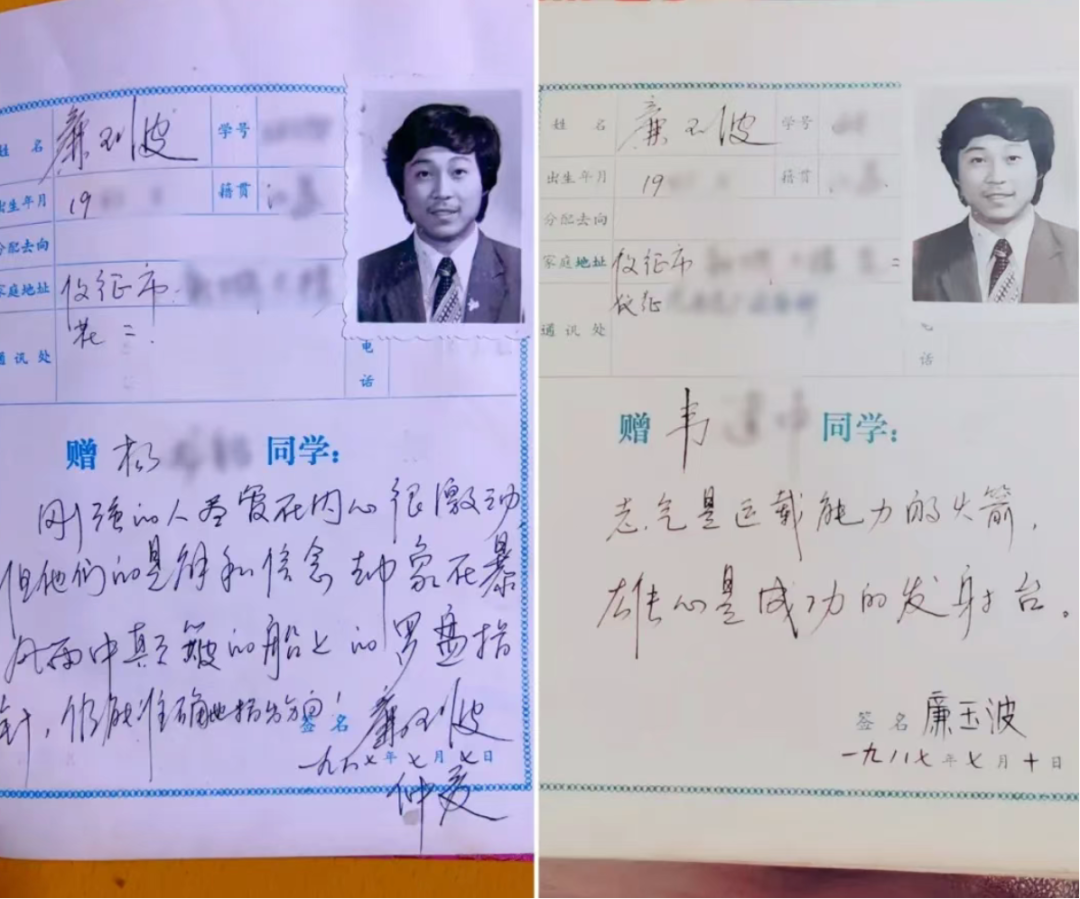 姓名 廉玉波 学号
出生年月 19 籍贯 江
分配去向
家庭地址 仪征市
花二.
通讯处 电话
赠 杨 同学：
刚强的人尽管在内心很激动
但他们的见解和信念却象在暴
风雨中颠簸的船上的罗盘指
针，仍能准确地指出方向！
签名 廉玉波
一九八七年七月七日
仲夏
姓名 廉玉波 学号
出生年月 19 籍贯
分配去向
家庭地址 仪征市 二
仪征
通讯处 电话
赠 韦 同学：
志气是运载能力的火箭，
雄心是成功的发射台。
签名 廉玉波
一九八七年七月十日